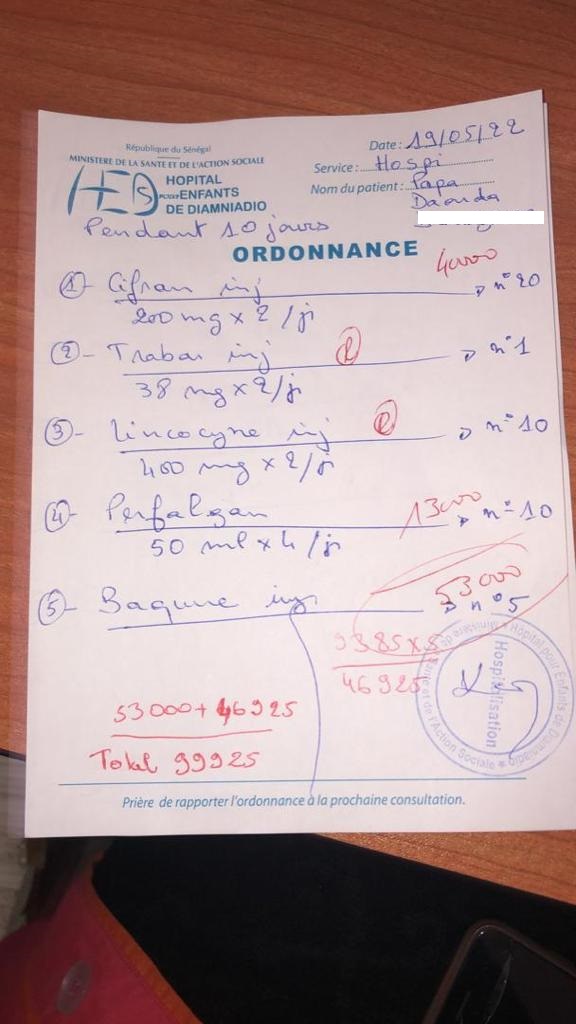 République du Sénégal
MINISTERE DE LA SANTE ET DE L'ACTION SOCIALE
HOPITAL
POUR ENFANTS
DE DIAMNIADIO
Date : 19/05/22
Service : Hospi
Nom du patient : Papa
Daouda
Pendant 10 jours
ORDONNANCE
40000
① - Cifran inj n° 20
200 mg x 2 /jr
② - Trabar inj n° 1
38 mg x 2/jr
③ - Lincocyne inj n° 10
400 mg x 2/jr
④ - Perfalgan 13000 n° 10
50 ml x 4 /jr
53000
⑤ - inj n° 5
9385 x 5
46925
53000 + 46925
Total 99925
Hôpital pour Enfants de Diamniadio
Ministère de la Santé et de l'Action Sociale
Hospitalisation
Prière de rapporter l'ordonnance à la prochaine consultation.